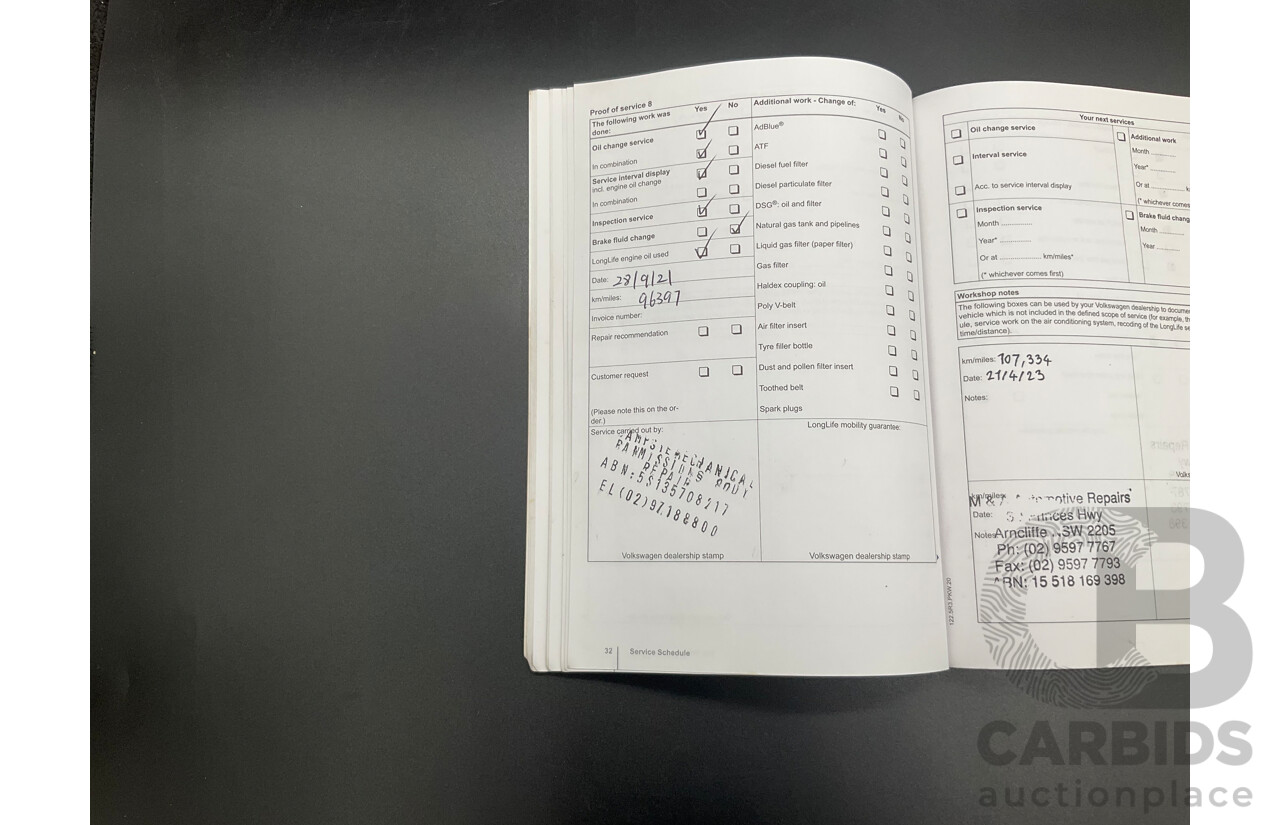 Proof of service 8
The following work was done:
Yes
No
Oil change service
In combination
Service interval display
incl. engine oil change
In combination
Inspection service
Brake fluid change
LongLife engine oil used
Date: 28/9/21
km/miles: 96397
Invoice number:
Repair recommendation
Customer request
(Please note this on the or-
der.)
Service carried out by:
MECHANICAL
REPAIR
ABN:55135708217
EL(02)97188800
Volkswagen dealership stamp
Additional work - Change of:
Yes
No
AdBlue®
ATF
Diesel fuel filter
Diesel particulate filter
DSG®: oil and filter
Natural gas tank and pipelines
Liquid gas filter (paper filter)
Gas filter
Haldex coupling: oil
Poly V-belt
Air filter insert
Tyre filler bottle
Dust and pollen filter insert
Toothed belt
Spark plugs
LongLife mobility guarantee:
Volkswagen dealership stamp
32
Service Schedule
Your next services
Oil change service
Interval service
Acc. to service interval display
Inspection service
Month ..............
Year* ..............
Or at .................... km/miles*
(* whichever comes first)
Additional work
Month
Year*
Or at
(* whichever comes
Brake fluid
Month
Year
Workshop notes
The following boxes can be used by your Volkswagen dealership to
vehicle which is not included in the defined scope of service (for example,
ule, service work on the air conditioning system, recoding of the LongLife
time/distance).
km/miles: 107,334
Date: 21/4/23
Notes:
km/miles:
Date:
Notes:
M & Repairs
Hwy
Arncliffe 2205
Ph: (02) 9597 7767
Fax: (02) 9597 7793
15 518 169 398
CARBIDS
auctionplace